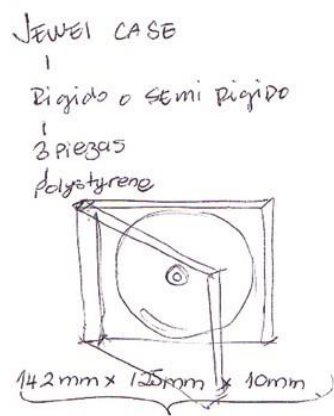 JEWEl CASE
Rigido o SEMi RigiDO
3 piezas
polystyrene
142mm x 125mm x 10mm